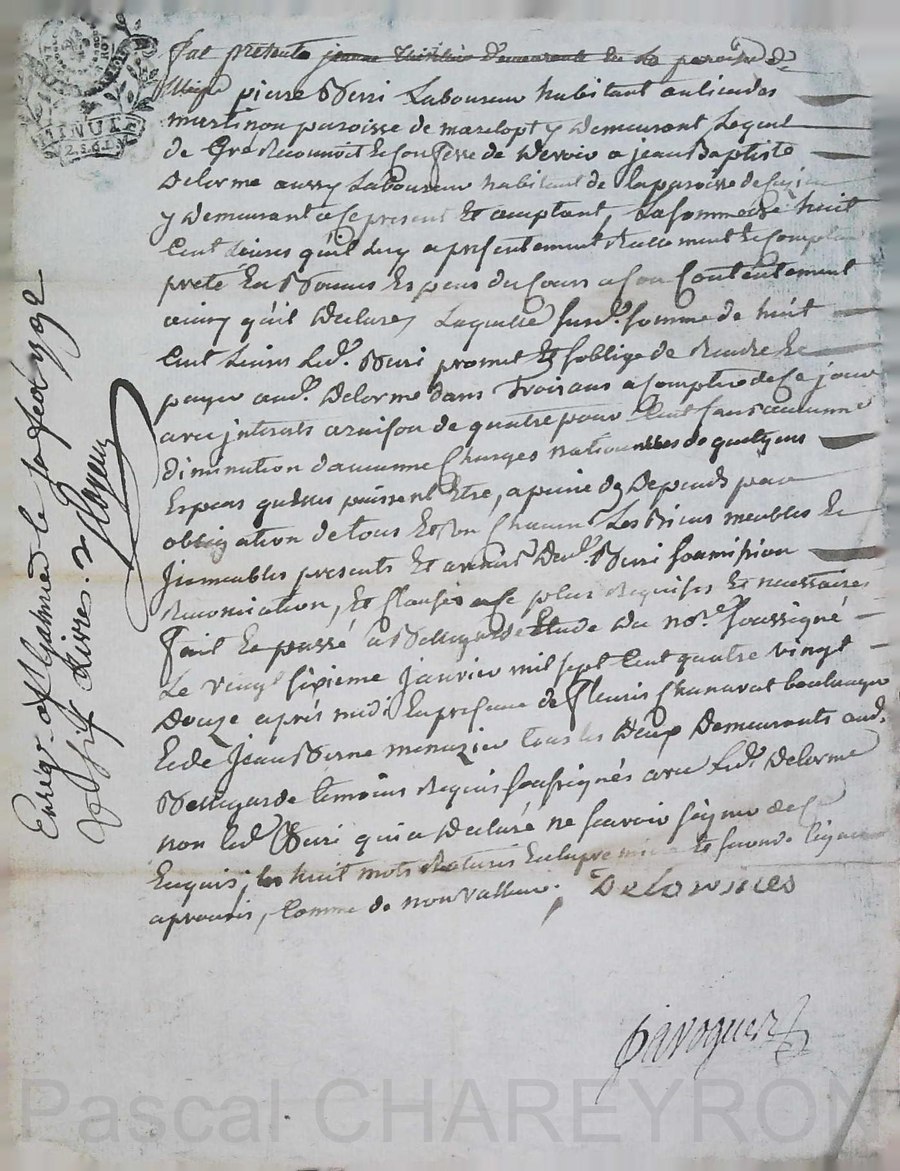 MINUT
2.S.6.D
Fut présente jeanne demeurant de la paroisse de
pierre Laboureur habitant au lieu des
martinon paroisse de marclopt y Demeurant Lequel
de Gré Reconnoit & Confesse de Devoir a jean Baptiste
Delorme aussy Laboureur habitant de la paroisse de
y Demeurant a ce present Et acceptant, La somme de huit
Cent Livres qu'il luy a presentement Reellement & Comptant
prete En Bonnes Especes du Cours a son Contentement
ainsy qu'il Declare, Laquelle susd.e somme de huit
Cent Livres Led.t promet Et s'oblige de Rendre &
payer aud.t Delorme dans Trois ans a Compter de Ce jour
avec jnterets a raison de quatre pour Cent sans aucune
diminution d'aucunne Charges nationnalles de quelques
Especes qu'elles puissent Etre, a peine de Depends par
obligation de tous Et Un Chacun Les Biens meubles &
jmmeubles presents Et avenirs Dud.t soumission
Renonciation, Et Clauses a ce plus Requises Et necessaires
Fait & passé a Bellegarde Etude du no.re soussigné
Le vingt sixieme Janvier mil sept Cent quatre vingt
Douze après midi En presence de Fleuris Chanavat boulanger
& de Jean menuzier tous les Deux Demeurants aud.
Bellegarde temoins Requis soussignés avec Led.t Delorme
non Led.t qui a Declaré ne scavoir signer de ce
Enquis, les huit mots Raturés En la premiere Et seconde lignes
aprouvés, Comme de non Valleur. DeLormes
Enrég. a St Galmier le 1792
livres.